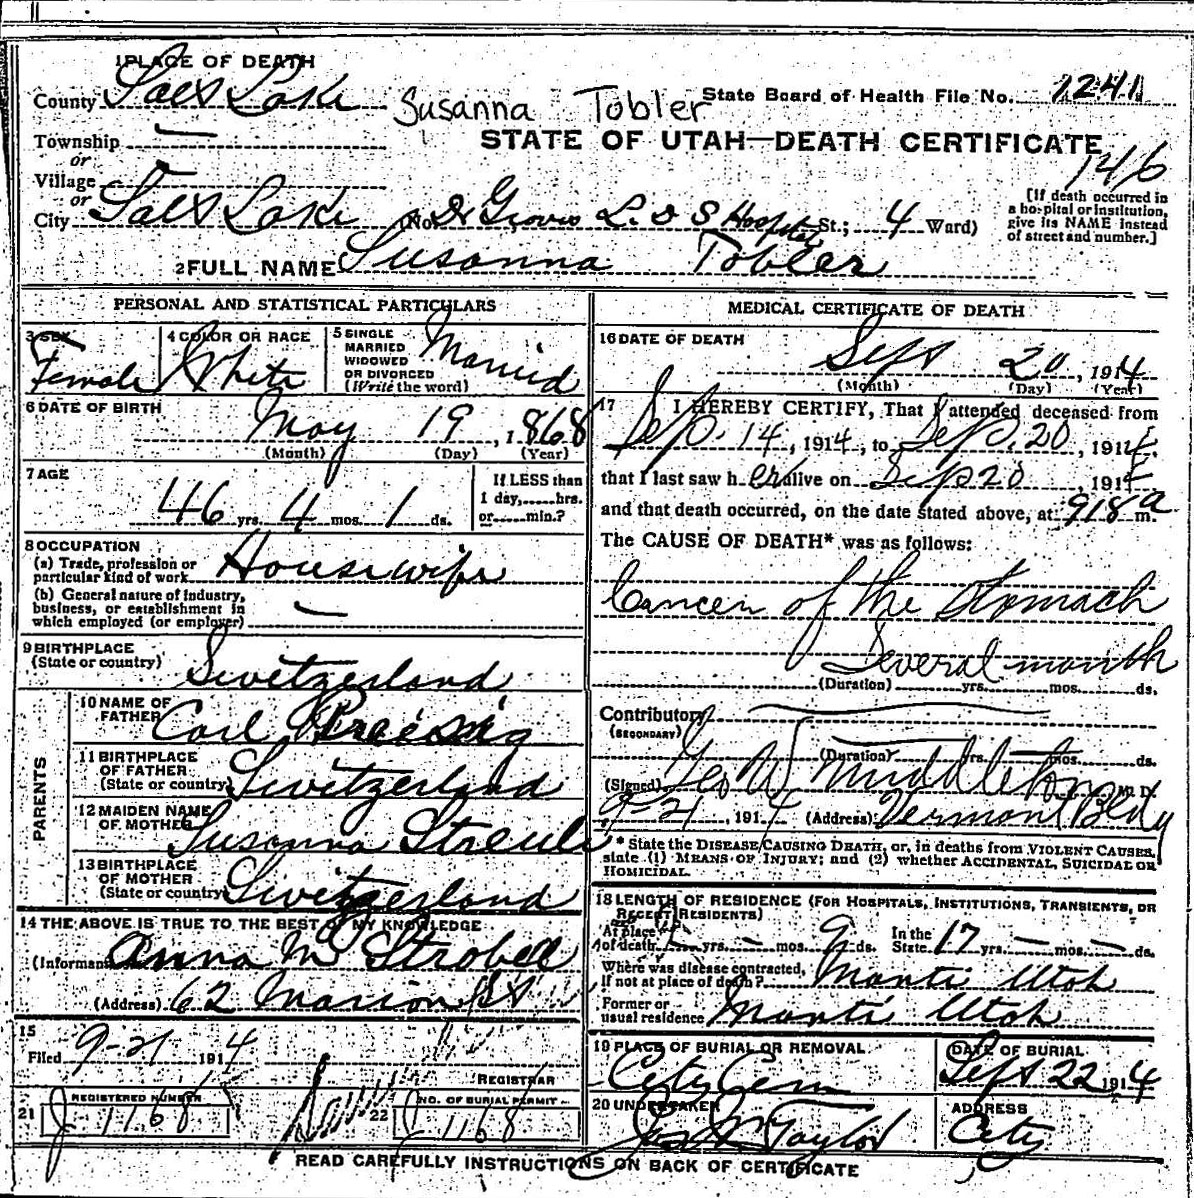 1 PLACE OF DEATH
County Salt Lake
Susanna Tobler
State Board of Health File No. 1241
Township —
STATE OF UTAH—DEATH CERTIFICATE
or
1416
Village
or
City Salt Lake (No. Dr Groves L. D S Hospital St.; 4 Ward)
[If death occurred in a hospital or institution, give its NAME instead of street and number.]
2 FULL NAME Susanna Tobler
PERSONAL AND STATISTICAL PARTICULARS
3 SEX Female
4 COLOR OR RACE White
5 SINGLE MARRIED WIDOWED OR DIVORCED (Write the word) Married
6 DATE OF BIRTH
May 19, 1868
(Month) (Day) (Year)
7 AGE
46 yrs. 4 mos. 1 ds.
If LESS than 1 day,......hrs. or......min.?
8 OCCUPATION
(a) Trade, profession or particular kind of work Housewife
(b) General nature of industry, business, or establishment in which employed (or employer) —
9 BIRTHPLACE
(State or country) Switzerland
PARENTS
10 NAME OF FATHER Carl Preisig
11 BIRTHPLACE OF FATHER (State or country) Switzerland
12 MAIDEN NAME OF MOTHER Susanna Streuli
13 BIRTHPLACE OF MOTHER (State or country) Switzerland
14 THE ABOVE IS TRUE TO THE BEST OF MY KNOWLEDGE
(Informant) Anna M Strobell
(Address) 62 Marion St
15
Filed 9-21 1914
REGISTRAR
21 REGISTERED NUMBER J 1168
22 NO. OF BURIAL PERMIT J 1168
MEDICAL CERTIFICATE OF DEATH
16 DATE OF DEATH
Sept 20, 1914
(Month) (Day) (Year)
17 I HEREBY CERTIFY, That I attended deceased from
Sep. 14, 1914, to Sep. 20, 1914,
that I last saw h er alive on Sep 20, 1914
and that death occurred, on the date stated above, at 918 a m.
The CAUSE OF DEATH* was as follows:
Cancer of the Stomach
Several month
(Duration) yrs. mos. ds.
Contributory
(SECONDARY)
(Duration) yrs. mos. ds.
(Signed) Geo W Middleton M. D.
9-21, 1914 (Address) Vermont Bldg
* State the DISEASE CAUSING DEATH, or, in deaths from VIOLENT CAUSES,
state (1) MEANS OF INJURY; and (2) whether ACCIDENTAL, SUICIDAL OR
HOMICIDAL.
18 LENGTH OF RESIDENCE (FOR HOSPITALS, INSTITUTIONS, TRANSIENTS, OR
RECENT RESIDENTS)
At place of death — yrs. — mos. 9 ds. In the State 17 yrs. — mos. — ds.
Where was disease contracted, If not at place of death? Manti Utah
Former or usual residence Manti Utah
19 PLACE OF BURIAL OR REMOVAL
City Cem
DATE OF BURIAL
Sept 22 1914
20 UNDERTAKER
Jos Wm Taylor
ADDRESS
City
READ CAREFULLY INSTRUCTIONS ON BACK OF CERTIFICATE